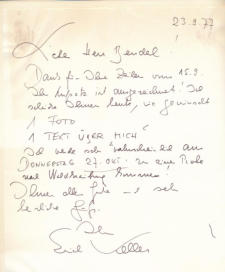 23.9.77
Liebe Herr Bendel!
Dank für Ihre Zeilen vom 15.9.
Ihr ist ausgezeichnet! Ich
schicke Ihnen heute, wie gewünscht
1 FOTO
1 TEXT ÜBER MICH
Ich werde wahrscheinlich am
DONNERSTAG 27. OKT. zu einer Probe
nach kommen!
Ihnen alles Gute und sehr
herzliche Grüße
Ihr